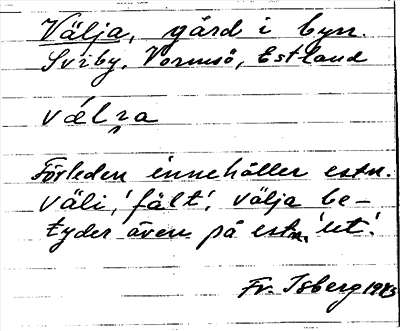 Välja, gård i byn
Sviby, Vormsö, Estland
vælɲa
Förleden innehåller estn.
väli, 'fält', välja be-
tyder även på estn. 'ut'.
Fr. Isberg 1983